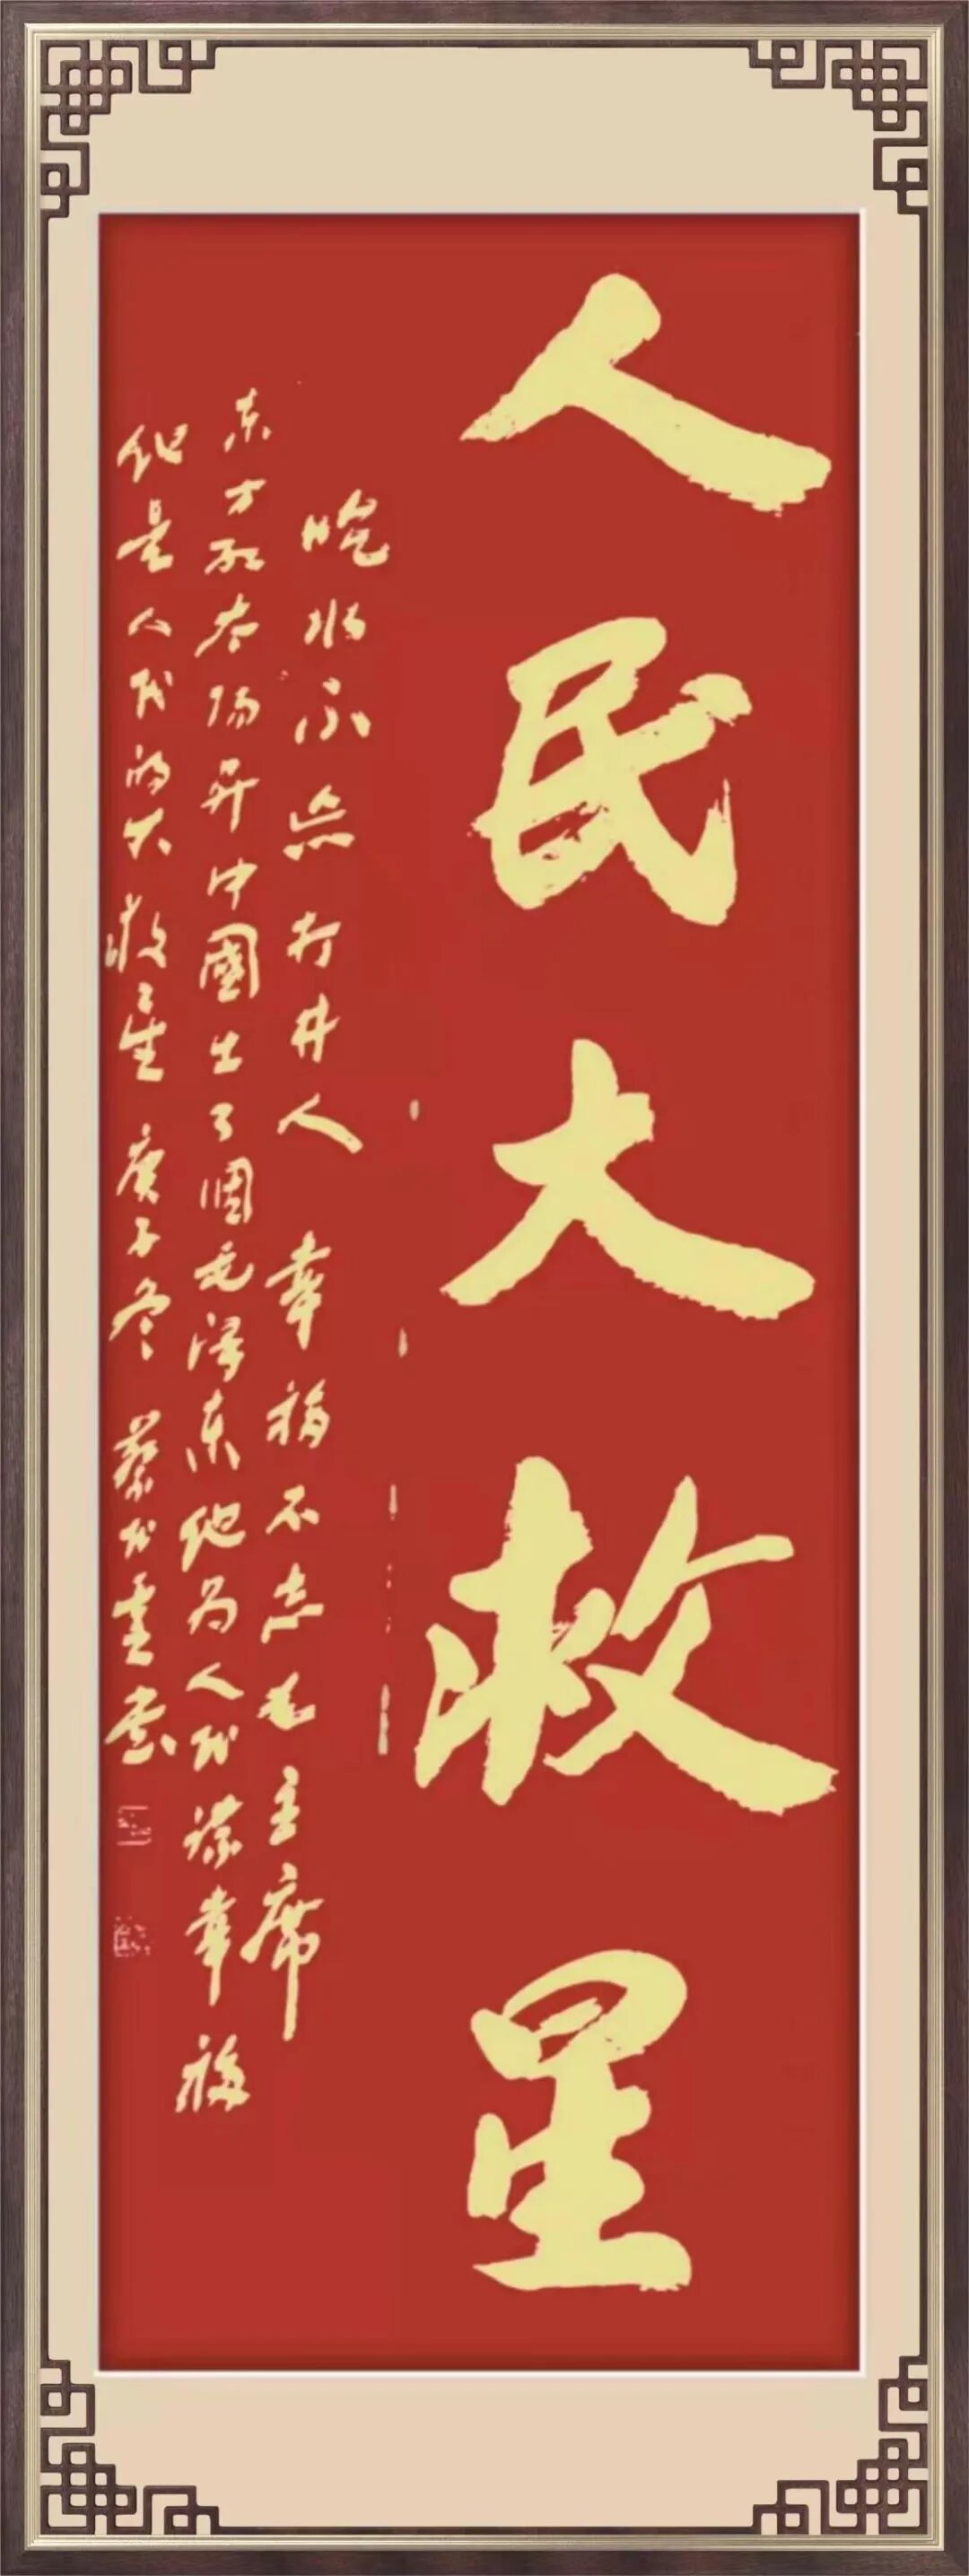 人民大救星
吃水不忘打井人 幸福不忘毛主席
东方红太阳升中國出了個毛泽東他为人民谋幸福
他是人民的大救星 庚子冬 蔡雲書